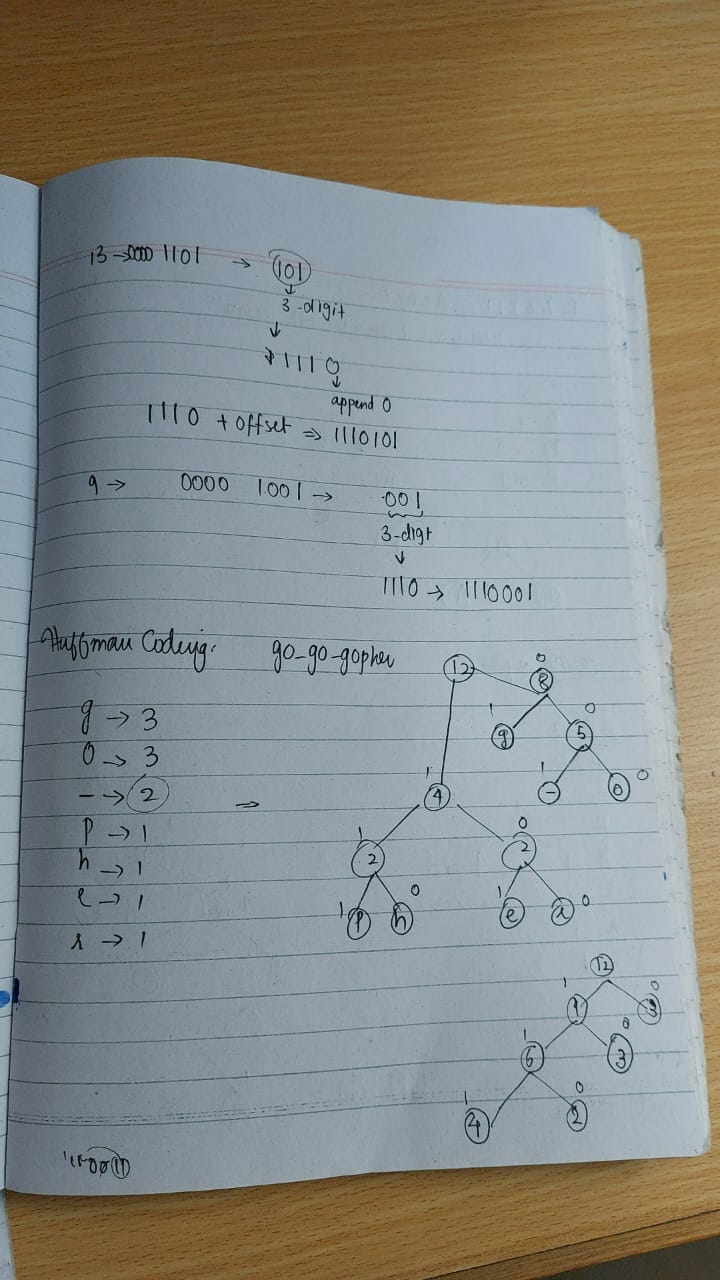 13 → 0000 1101 → 101
↓
3-digit
↓
1110
↓
append 0
1110 + offset ⇒ 1110101
9 → 0000 1001 → 001
3-digt
↓
1110 → 1110001
Huffman Coding: go-go-gopher
g → 3
o → 3
- → 2 ⇒
p → 1
h → 1
e → 1
r → 1
12
0
8
1 0
g 5
1 0
- o
1
4
1 0
2 2
1 0 1 0
p h e r
12
1 0
9 3
1 0
6 3
1 0
4 2